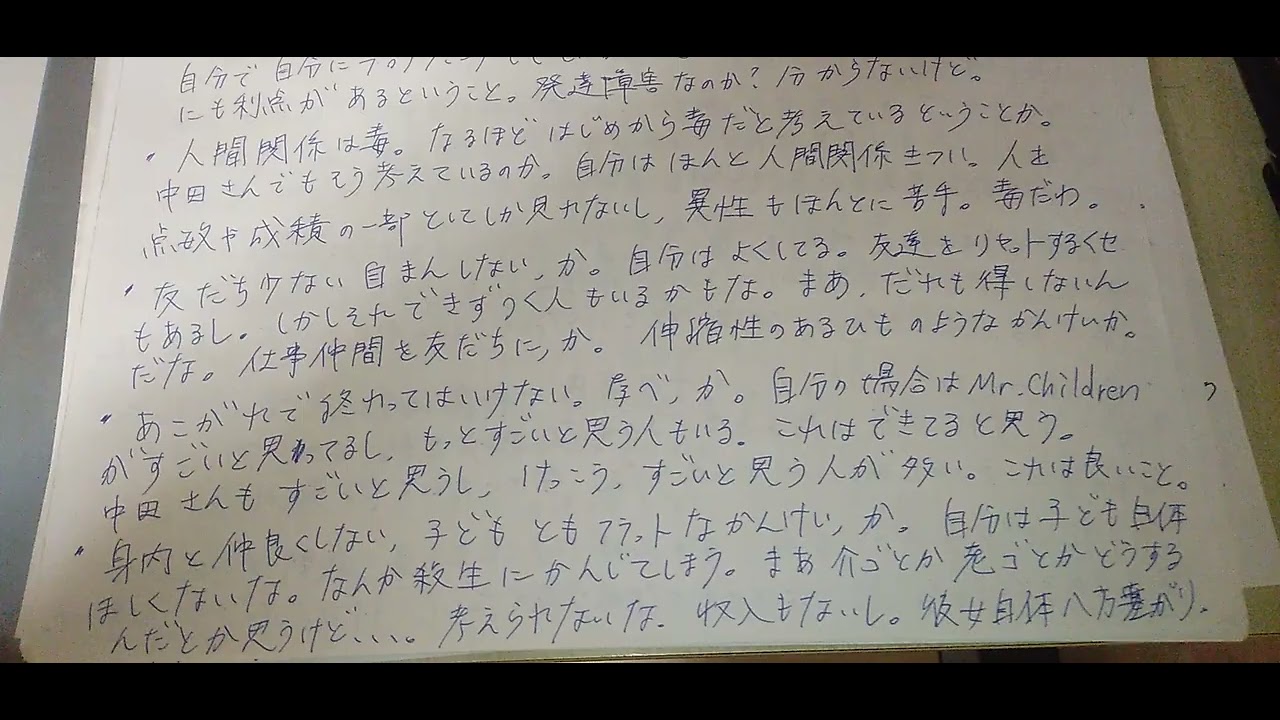 自分で自分に
にも利点があるということ。発達障害なのか?分からないけど。
人間関係は毒。なるほどはじめから毒だと考えているということか。
中田さんでもそう考えているのか。自分はほんと人間関係きつい。人を
点数や成績の一部としてしか見れないし、異性もほんとに苦手。毒だわ。
友だち少ない自まんしない、か。自分はよくしてる。友達をリセットするくせ
もあるし。しかしそれできずつく人もいるかもな。まあ、だれも得しないん
だな。仕事仲間を友だちに、か。伸縮性のあるひものようなかんけいか。
あこがれで終わってはいけない。学べ、か。自分の場合はMr.Children
がすごいと思わってるし、もっとすごいと思う人もいる。これはできてると思う。
中田さんもすごいと思うし、けっこう、すごいと思う人が多い。これは良いこと。
身内と仲良くしない、子どもともフラットなかんけい、か。自分は子ども自体
ほしくないな。なんか殺生にかんじてしまう。まあ介ゴとか老ゴとかどうする
んだとか思うけど、、、。考えられないな。収入もないし。彼女自体八方塞がり。